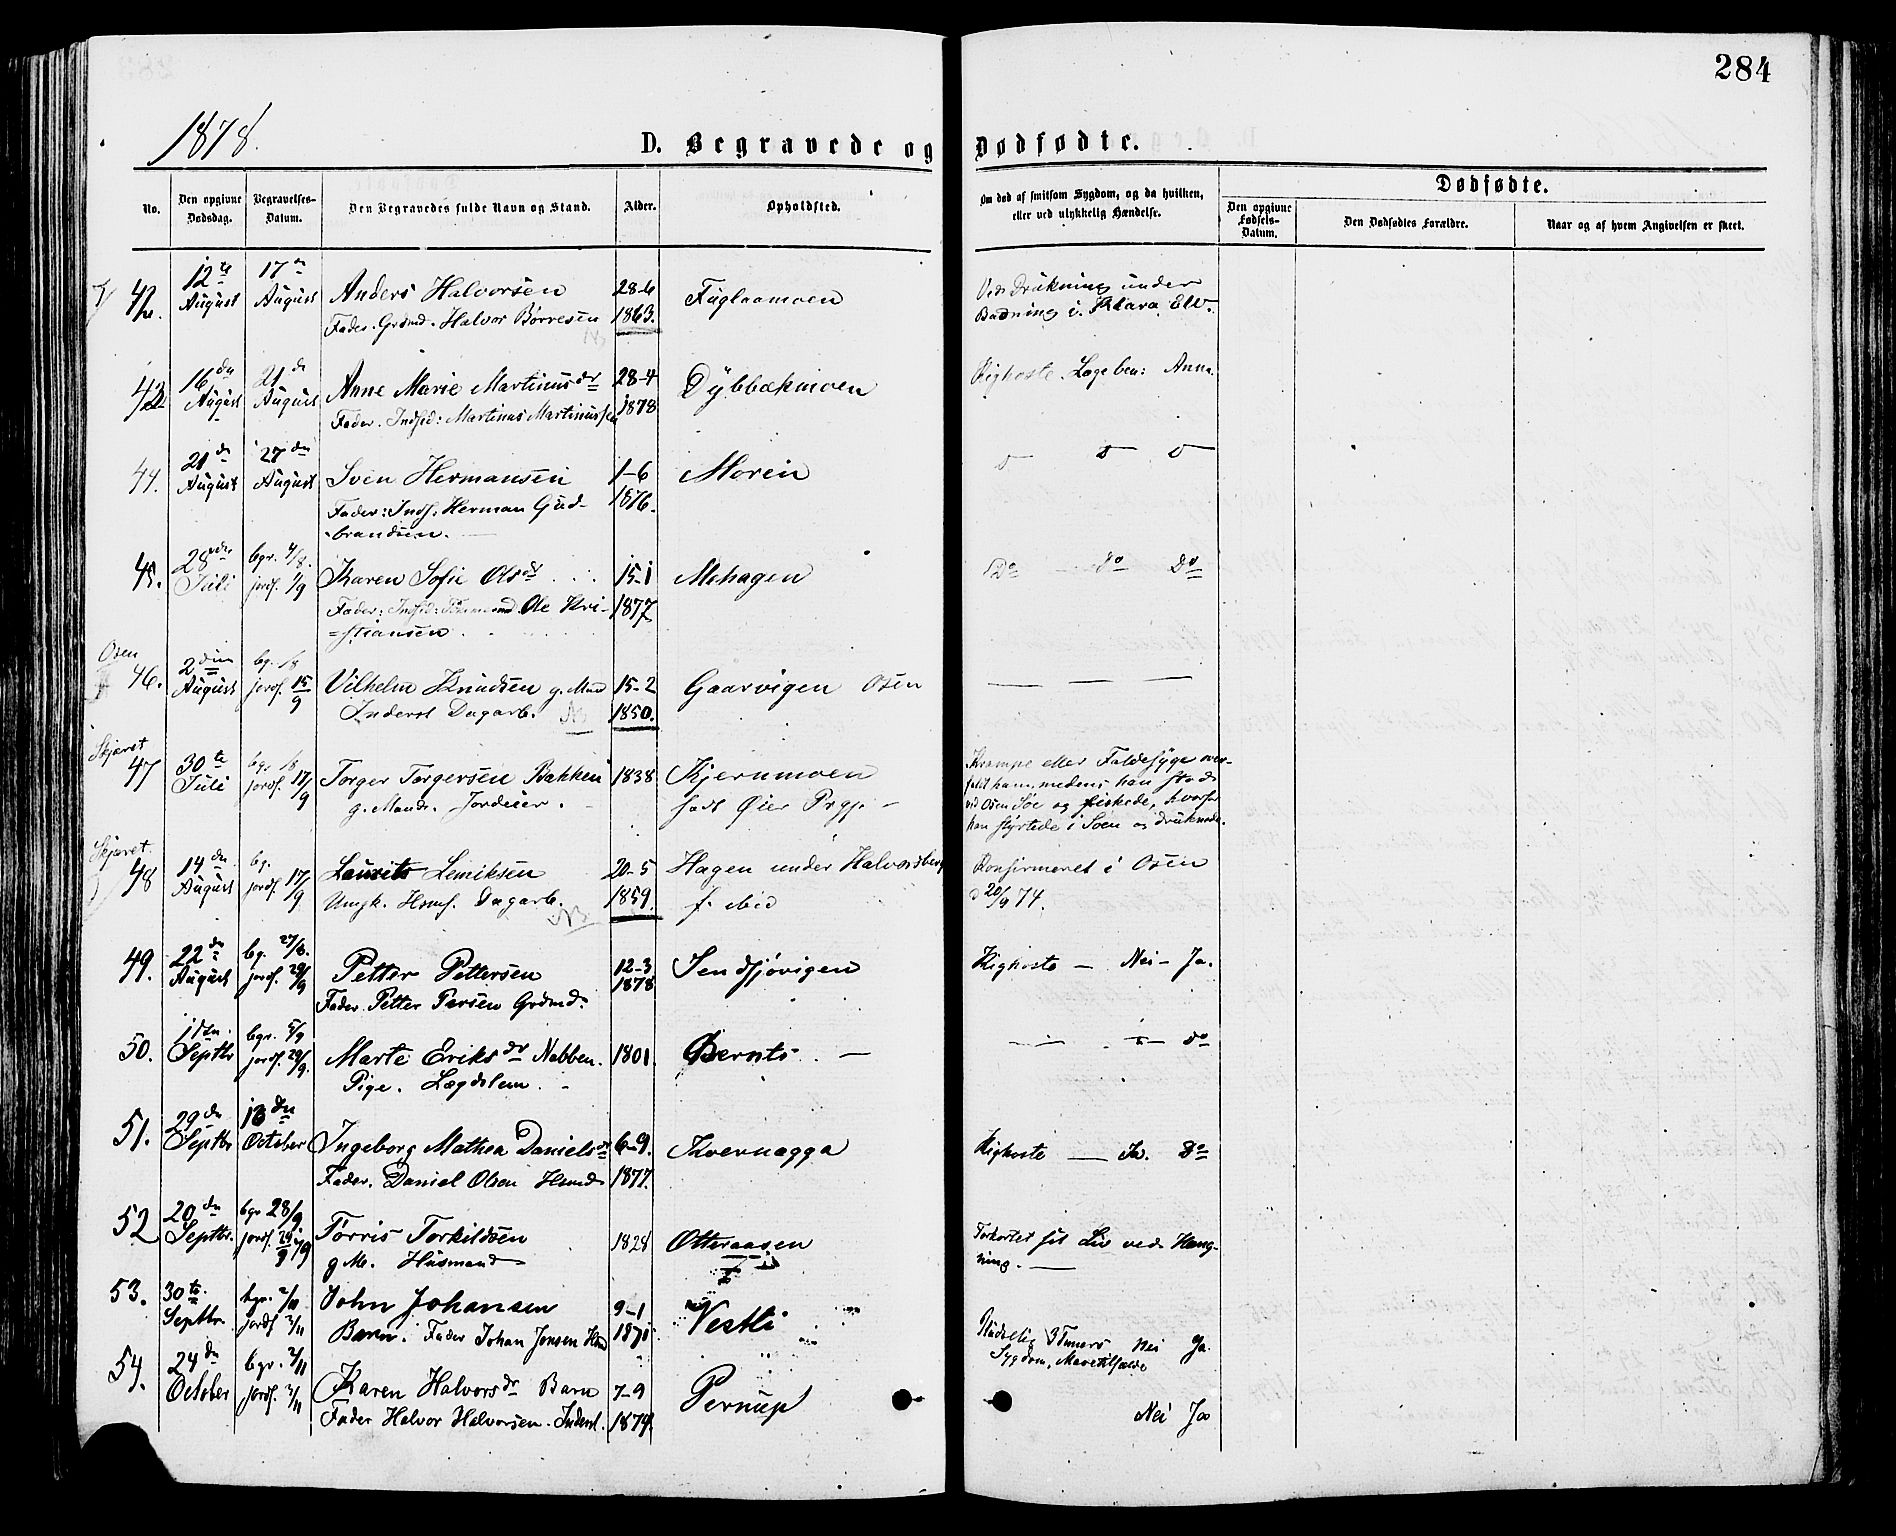 284
1878.
D. Begravede og Dødfødte.
No.
Den opgivne Dødsdag.
Begravelses-Datum.
Den Begravedes fulde Navn og Stand.
Alder.
Opholdsted.
Om død af smitsom Sygdom, og da hvilken, eller ved ulykkelig Hændelse.
Dødfødte.
Den opgivne Fødsels-Datum.
Den Dødfødtes Forældre.
Naar og af hvem Angivelsen er skeet.
42. 12te August 17de August Anders Halvorsen 28-6 1863. Fuglaamoen
Fader. Grdmd. Halvor Børresen
Ved Drukning under
Badning i Klara Elv.
16de August 21de August Anne Marie Martinusdr 28-4 1878 Dybbækmoen
Fader. Indsid: Martinus Martinussen
Kighoste. Lægeben: Anm.
44. 21de August 27de August Sven Hermansen 1-6 1876. Moren
Fader: Inds. Herman Gud-
brandsen.
45. 28de Juli bgr. 4/8. jordf. 1/9 Karen Sofie Olsdr 15-1 1877 Mehagen
Fader: Indsid: Ole Kri-
=stiansen
Do do Do
Osen
46. 2den August jordf. 15/9 Vilhelm Knudsen g. Mand 15-2 1850. Gaarvigen Osen
Inderst Dagarb.
Skjæret
47 30te Juli jordf. 17/9 Torger Torgersen Bakken 1838 Kjernmoen
g. Mand. Jordeier. født Øier Prgj.
Krampe eller Faldesyge over-
faldt ham, medens han stod
ved Osen Søe og fiskede, hvorfor
han styrtede i Søen og druknede.
Skjæret
48 14de August bg. jordf. 17/9 Laurits Lmiksen 20-5 1859. Hagen under Halvordsberg
Ungk. Dagarb. f. ibid
Konfirmeret i Osen
d 20/9 74.
49. 22de August bg. 27/8. jordf. 29/9 Petter Pettersen 12-3 1878 Sendsjøvigen
Fader Petter Persen Grdmd.
Kighoste — Nei — Ja.
50. 1den Septbr bgr. 5/9 jordf. 29/9. Marte Eriksdr Nabben. 1801. Bernts
Pige. Lægdslem.
do
51. 29de Septbr 13de October Ingeborg Mathea Danielsdr 6-9. 1877. Kvernagga
Fader. Daniel Olsen Husmd
Kighoste — Ja. Do
52 20de Septbr. bgr 28/9. jordf. 29/9 79 Tørris Torkildsen 1828 Otteraasen
g M. Husmand
Forkortet sit Liv ved Hæng-
ning.
53. 30te Septbr bgr. jordf. 3/11 John Johansen 9-1 Vestli
Barn. Fader Johan Jonsen
Nei Ja
Sygdom, Mavetilfælde
54. 24de October bgr. 3/11 jordf. 3/11 Karen Halvorsdr Barn 7-9 1874. Pernup
Fader Halvor Halvorsen. Inderst.
Nei Ja